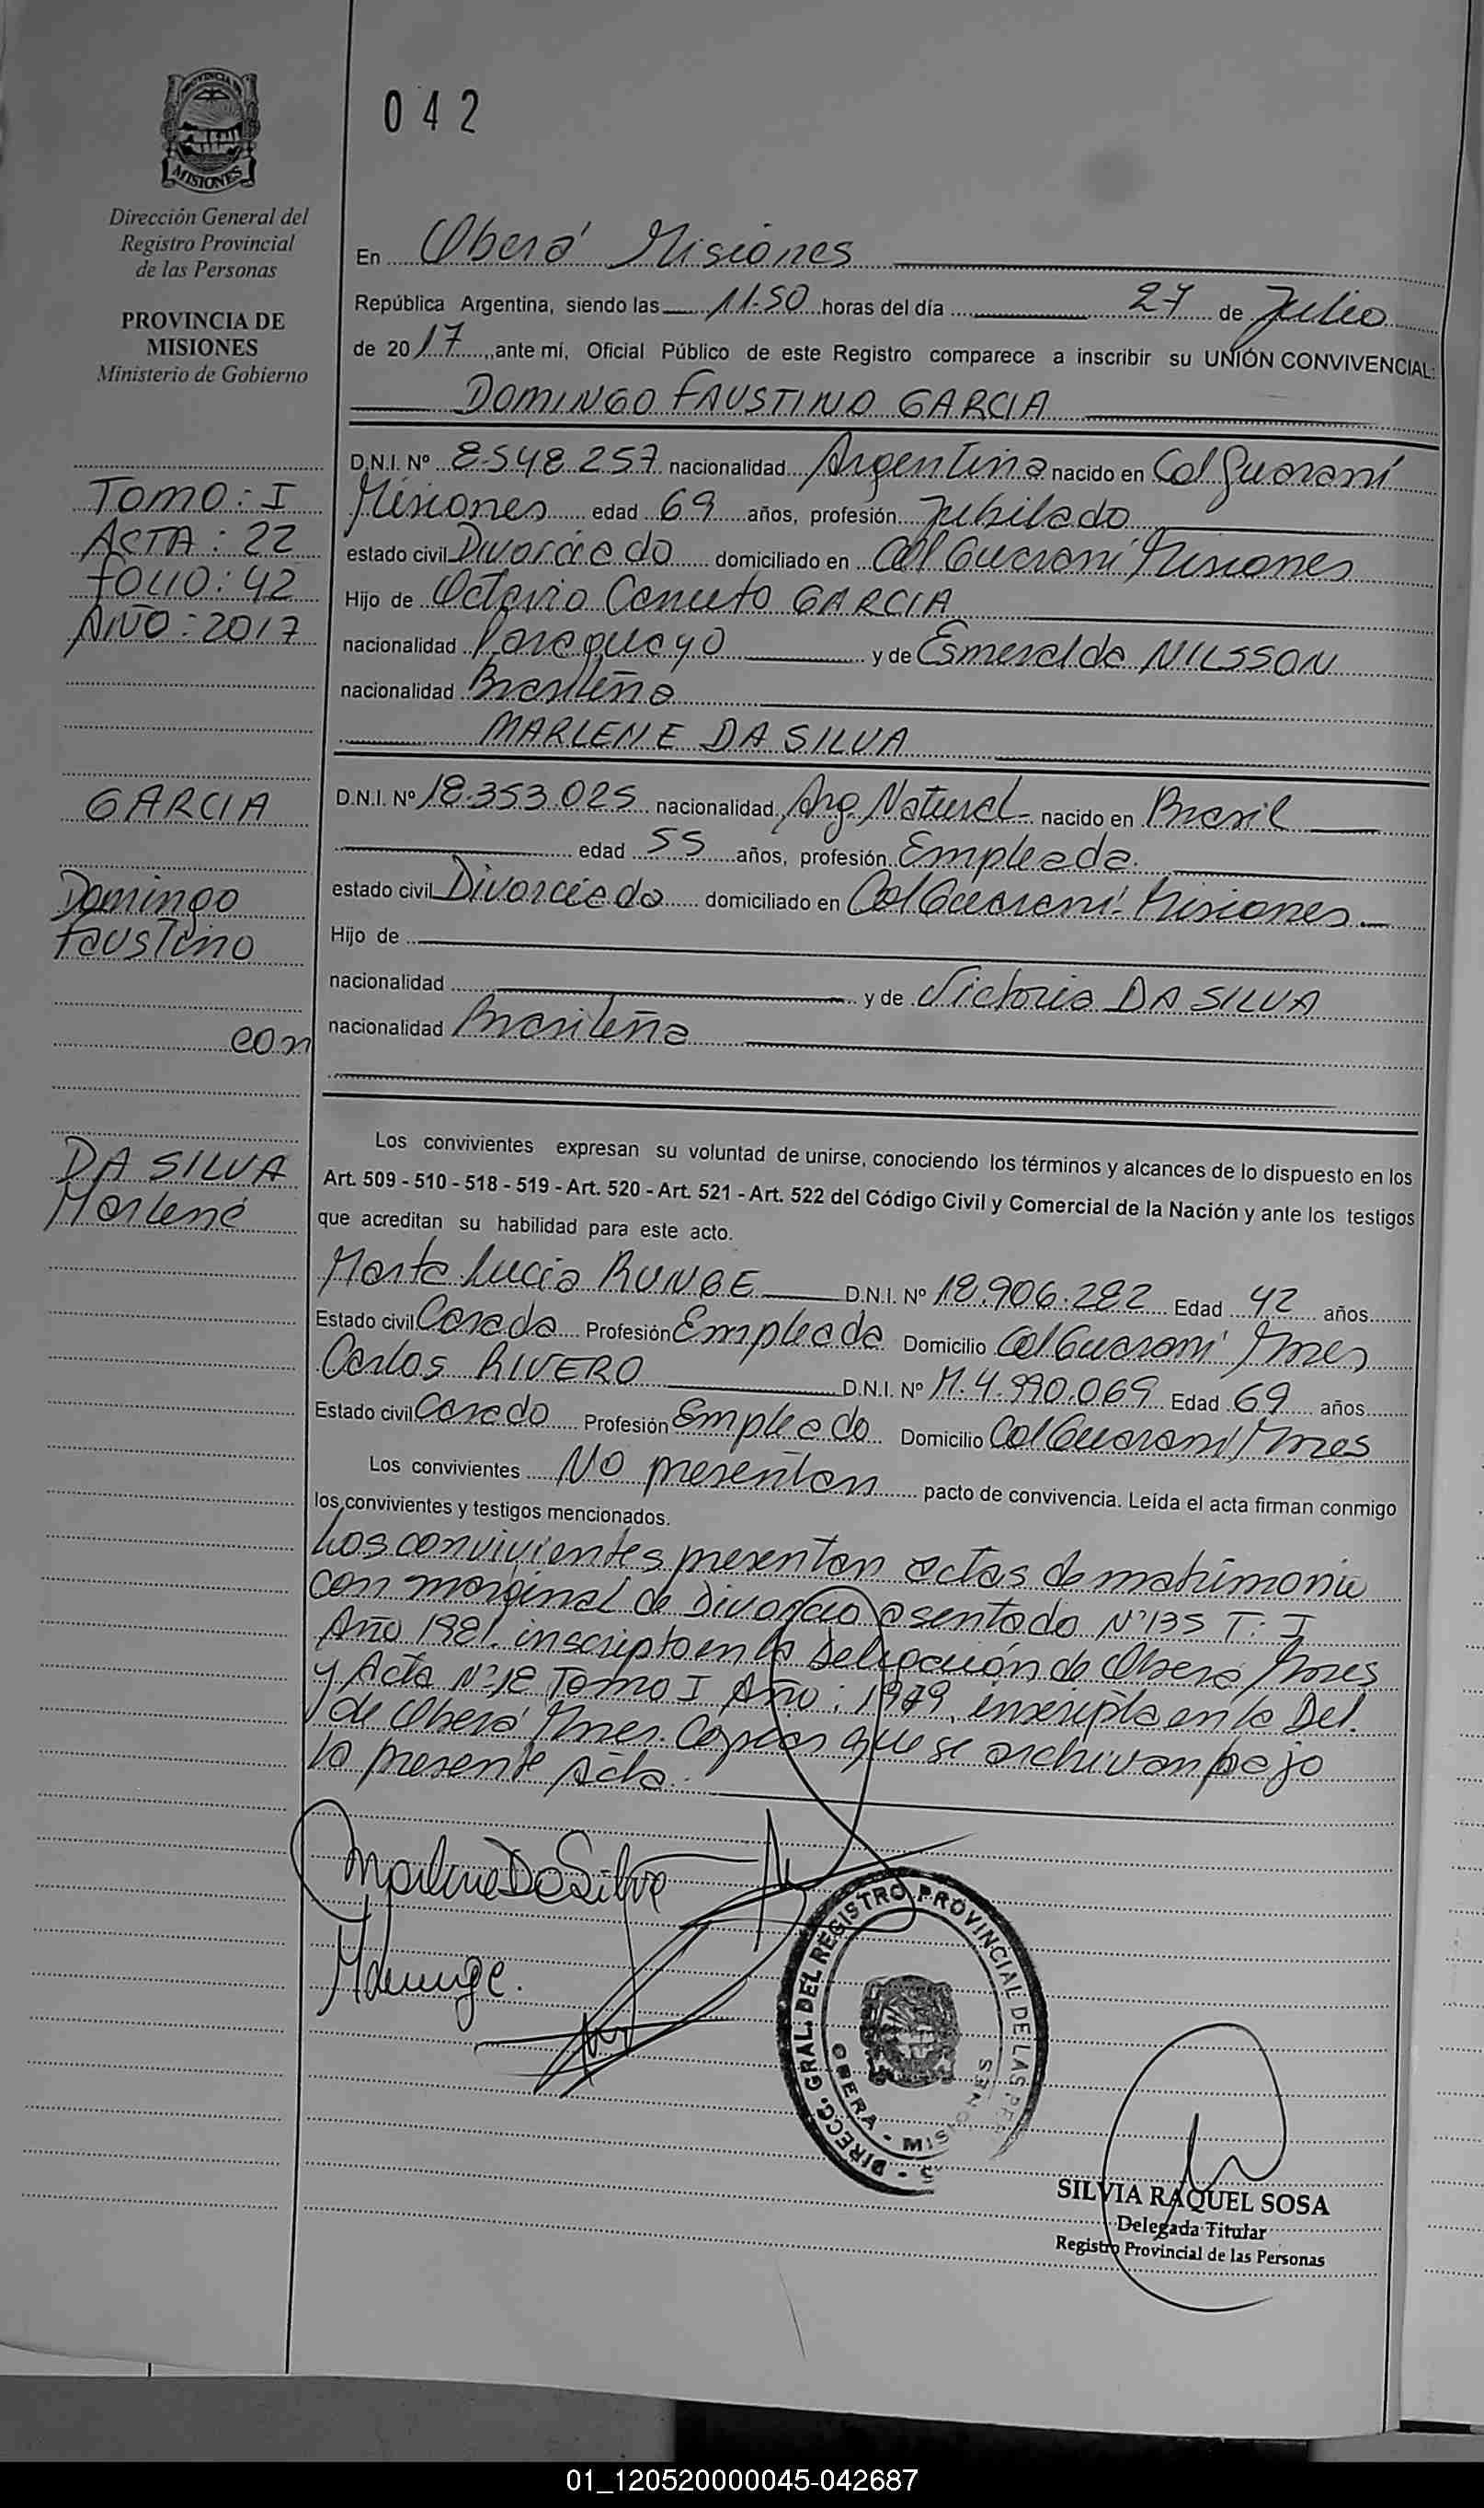 042
MISIONES
Dirección General del
Registro Provincial
de las Personas
PROVINCIA DE
MISIONES
Ministerio de Gobierno
TOMO: I
ACTA: 22
FOLIO: 42
AÑO: 2017
GARCIA
Domingo
Faustino
con
DA SILVA
Marlene
En Oberá Misiones
República Argentina, siendo las 11.50 horas del día 27 de Julio
de 2017, ante mí, Oficial Público de este Registro comparece a inscribir su UNIÓN CONVIVENCIAL:
DOMINGO FAUSTINO GARCIA
D.N.I. Nº 8.548.257 nacionalidad Argentina nacido en Col Guaraní
Misiones edad 69 años, profesión Jubilado
estado civil Divorciado domiciliado en Col Guaraní Misiones
Hijo de Octavio Canuto GARCIA
nacionalidad Paraguayo y de Esmeralda NILSSON
nacionalidad Brasileña
MARLENE DA SILVA
D.N.I. Nº 18.353.025 nacionalidad Arg. Natural- nacido en Brasil
edad 55 años, profesión Empleada.
estado civil Divorciada domiciliado en Col Guaraní- Misiones
Hijo de
nacionalidad y de Victoria DA SILVA
nacionalidad Brasileña
Los convivientes expresan su voluntad de unirse, conociendo los términos y alcances de lo dispuesto en los
Art. 509 - 510 - 518 - 519 - Art. 520 - Art. 521 - Art. 522 del Código Civil y Comercial de la Nación y ante los testigos
que acreditan su habilidad para este acto.
Marta Lucia RUNGE D.N.I. Nº 18.906.282 Edad 42 años
Estado civil Casada Profesión Empleada Domicilio Col Guaraní Mnes
Carlos RIVERO D.N.I. Nº M.4.990.069 Edad 69 años
Estado civil Casado Profesión Empleado Domicilio Col Guaraní Mnes
Los convivientes No presentan pacto de convivencia. Leída el acta firman conmigo
los convivientes y testigos mencionados.
Los convivientes presentan actas de matrimonio
con marginal de Divorcio asentado Nº 135 T: I
Año 1981. inscripto en la Delegación de Oberá Mnes
y Acta Nº 18 Tomo I Año: 1979, inscripta en la Del.
de Oberá Mnes. Copias que se archivan bajo
la presente Acta.
Marlene Da Silva
DIRECC. GRAL. DEL REGISTRO PROVINCIAL DE LAS
OBERA - MISIONES
SILVIA RAQUEL SOSA
Delegada Titular
Registro Provincial de las Personas
01_120520000045-042687